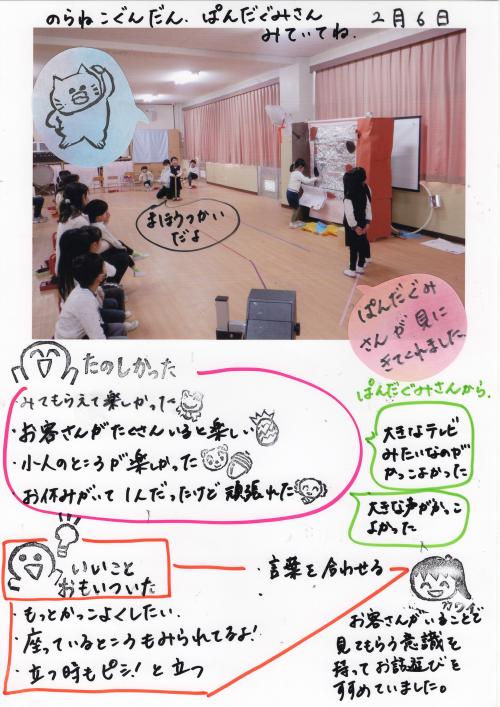 のらねこぐんだん、ぱんだぐみさん
みていてね。
2月6日
まほうつかい
だよ
ぱんだぐみ
さんが見に
きてくれました
たのしかった
・みてもらえて楽しかった
・お客さんがたくさんいると楽しい
・小人のところが楽しかった
お休みがいて1人だったけど頑張れた
ぱんだぐみさんから、
大きなテレビ
みたいなのが
かっこよかった
大きな声がかっこ
よかった
いいこと
おもいついた
・言葉を合わせる
・もっとかっこよくしたい
・座っているところもみられてるよ!
・立つ時もピシ!と立つ
お客さんがいることで
見てもらう意識を
持ってお話遊びを
すすめていました。